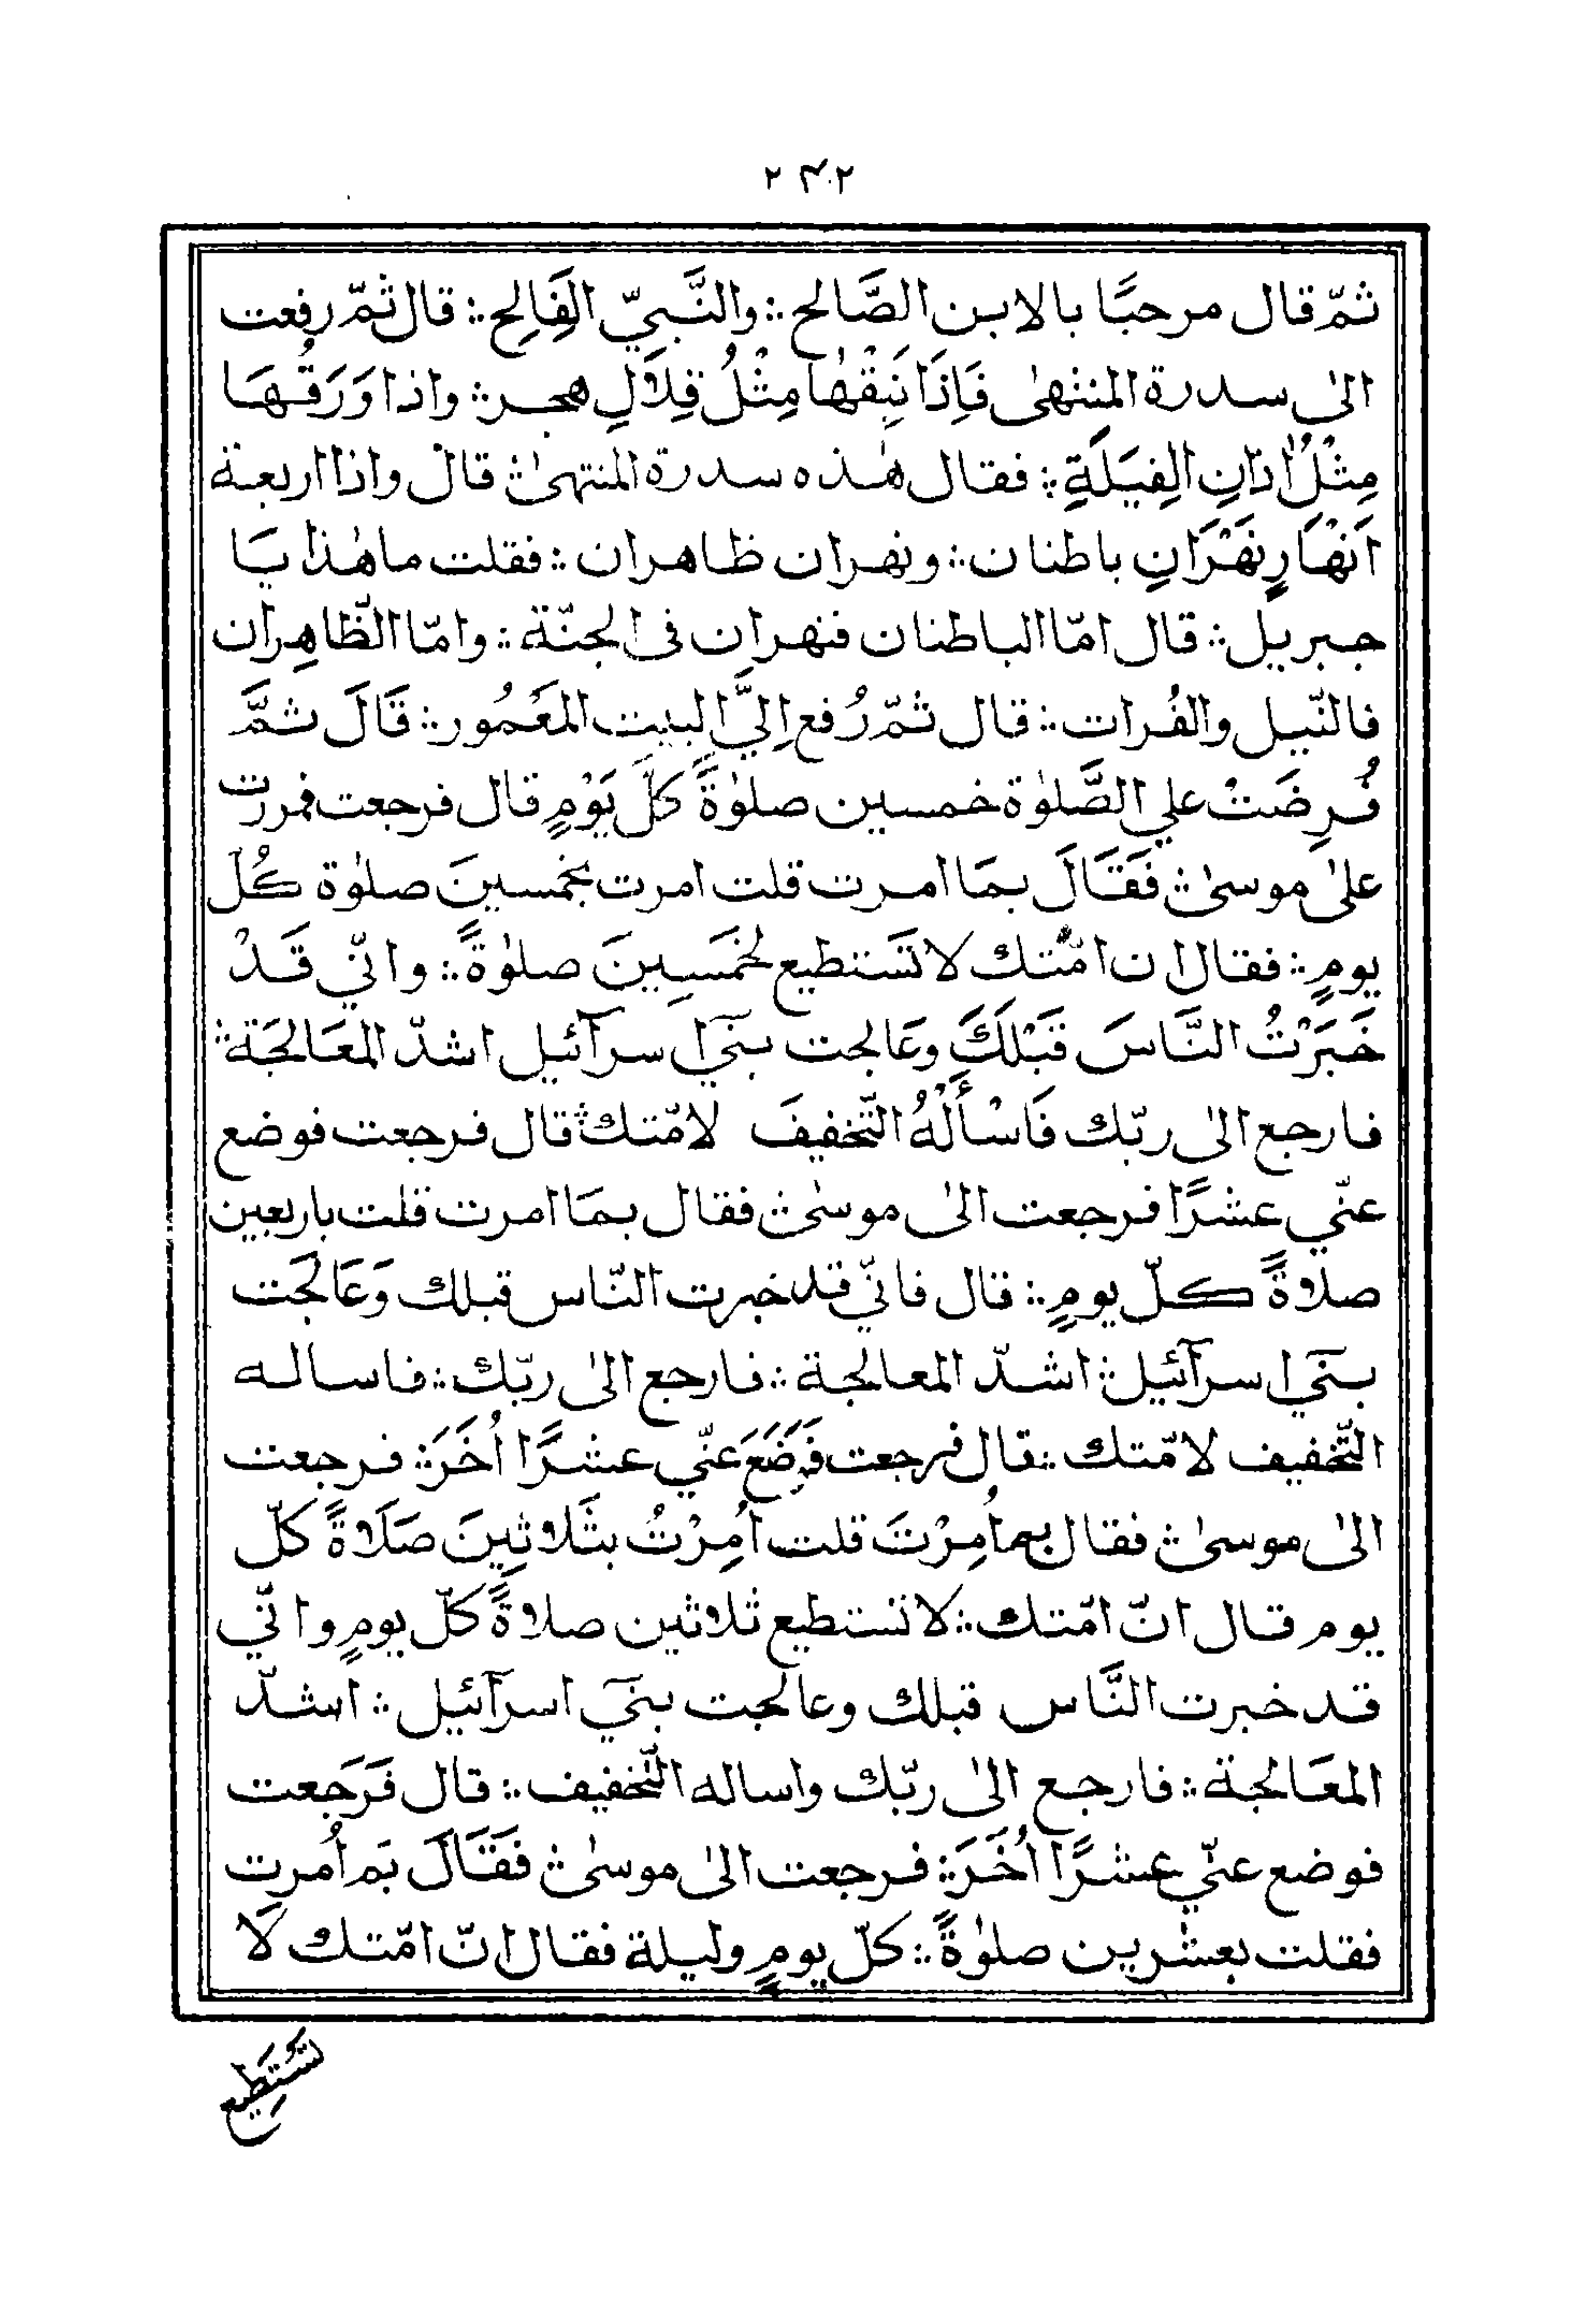 ٢٤٢
ثمّ قال مرحبًا بالابن الصَّالح ؞ والنَّبيّ الفَالِح ؞ قال ثمّ رفعت
الىٰ سدرة المنتهىٰ فَاِذَا نَبِقْهٰا مِثْلُ قِلَالِ هجر ؞ واذا وَرَقُهَا
مِثْلُ اٰذانِ الفِيَلَةِ ؞ فقال هٰذه سدرة المنتهىٰ ؞ قال واذا اربعة
اَنْهَارٍ نَهْرَانِ باطنان ؞ ونهران ظاهران ؞ فقلت ماهٰذا يَا
جبريل ؞ قال امّا الباطنان فنهران فى الجنّة ؞ وامّا الظّاهِران
فالنّيل والفُرات ؞ قال ثمّ رُفع اِلَيَّ البيت المَعْمُور ؞ قَالَ ثمَّ
فُرِضَتْ علي الصَّلوٰة خمسين صلوٰةً كلَّ يَوْمٍ قال فرجعت فمررت
علىٰ موسىٰ ؞ فَقَالَ بمَا امرت قلت امرت بخمسينَ صلوٰة كُلّ
يومٍ ؞ فقال ان امّتك لا تَستطيع لخمَسِينَ صلوٰةً ؞ وانّي قَدْ
خَبَرْتُ النَّاسَ قَبْلَكَ وعَالجت بنَيٓ اسرآئيل اشدّ المعَالجَة ؞
فارجع الىٰ ربّك فَاسْأَلْهُ التَّخفيفَ لامّتك ؞ قال فرجعت فوضع
عنّي عشرًا فرجعت الىٰ موسىٰ ؞ فقال بمَا امرت قلت باربعين
صلاةً كلّ يومٍ ؞ قال فانّي قد خبرت النّاس قبلك وَعَالجَت
بنَيٓ اسرآئيل ؞ اشدّ المعالجة ؞ فارجع الىٰ ربّك ؞ فاساله
التّخفيف لامّتك ؞ قال فرجعت فَوَضَعَ عنّي عشرًا اُخَرَ ؞ فرجعت
الىٰ موسىٰ ؞ فقال بما اُمِرْتَ قلت اُمِرْتُ بثَلاثِينَ صَلَاةً كلّ
يوم قال انّ امّتك ؞ لا تستطيع ثلاثين صلاةً كلّ يومٍ وانّي
قد خبرت النَّاس قبلك وعالجت بنَيٓ اسرآئيل ؞ اشدّ
المعَالجة ؞ فارجع الىٰ ربّك واساله التّخفيف ؞ قال فَرَجَعت
فوضع عنّي عشرًا اُخَرَ ؞ فرجعت الىٰ موسىٰ ؞ فَقَالَ بَم اُمرت
فقلت بعشرين صلوٰةً ؞ كلّ يومٍ وليلة فقال انّ امّتك لَا
تستطيع